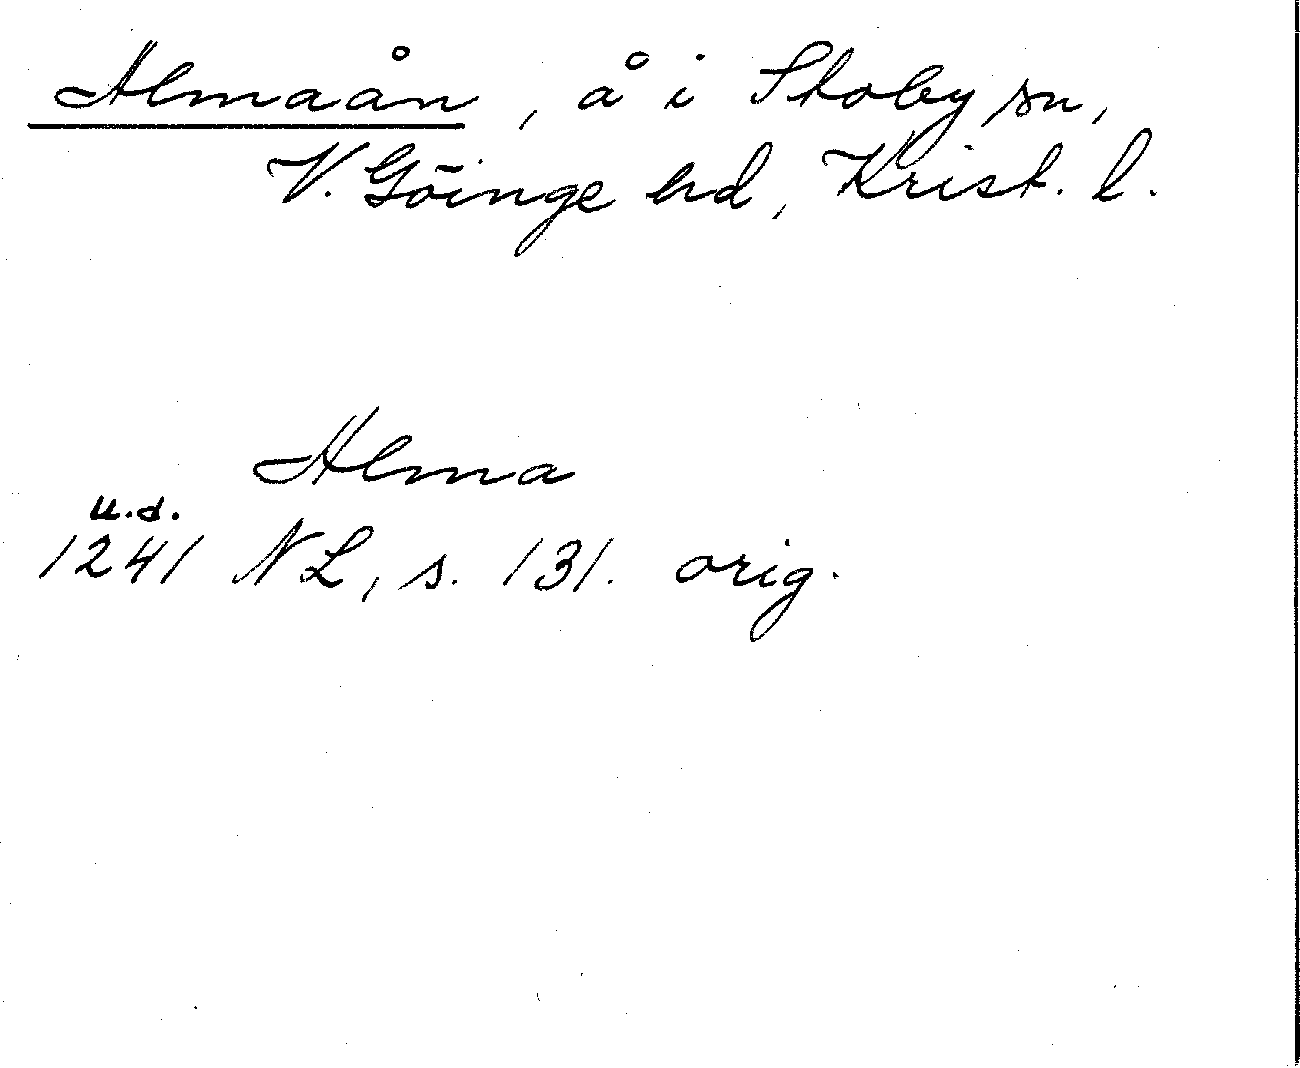 Almaån, å i Stoby sn,
V. Göinge hd, Krist. l.
Alma
u.d.
1241 NL, s. 131. orig.